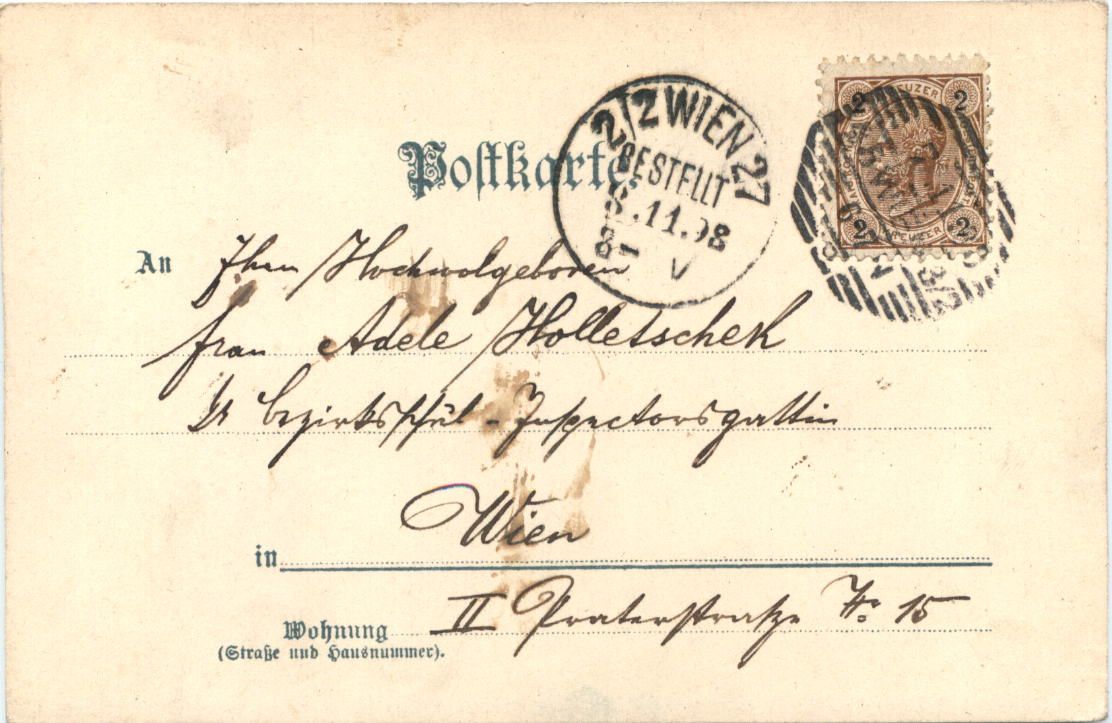 Postkarte.
2/2 WIEN 27
BESTELLT
8.11.98
8- V
2 KREUZER 2
2 KREUZER 2
An Ihrer Hochwolgeboren
Frau Adele Holletschek
Bezirksschul-Inspectorsgattin
in Wien
Wohnung II Praterstraße No 15
(Straße und Hausnummer).